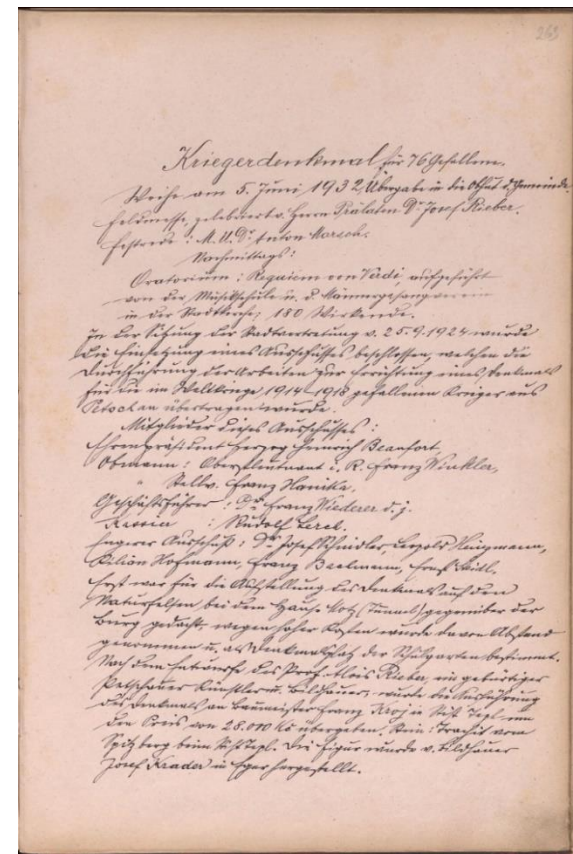 263
Kriegerdenkmal für 76 Gefallene.
Weihe am 5. Juni 1932, Übergabe in die Obhut d. Gemeinde.
Feldmesse, zelebriert v. Herrn Prälaten Dr. Josef Rieber.
Festrede: M. U. Dr. Anton Marsch.
Nachmittags:
Oratorium: Requiem von Verdi, aufgeführt
von der Musikschule u. d. Männergesangverein
in der Stadtkirche, 180 Wirkende.
In der Sitzung der Stadtvertretung v. 25.9.1924 wurde
die Einsetzung eines Ausschusses beschlossen, welchem die
Durchführung der Arbeiten zur Errichtung eines Denkmals
für die im Weltkriege 1914–1918 gefallenen Krieger aus
Petschau übertragen wurde.
Mitglieder dieses Ausschusses:
Ehrenpräsident Herzog Heinrich Beaufort,
Obmann: Oberstleutnant i. R. Franz Winkler,
" Stellv. Franz Hanika,
Geschäftsführer: Dr. Franz Wiederer d. j.
: Rudolf Lerch.
Engerer Ausschuß: Dr. Josef Schindler, Leopold Heinzmann,
Kilian Hofmann, Franz Ernst
Erst war für die Aufstellung des Denkmals auf den
Naturfelsen bei dem Hause (Tunnel) gegenüber der
Burg gedacht, wegen hoher Kosten wurde davon Abstand
genommen u. als Denkmalplatz der Schulgarten bestimmt.
Nach dem Entwurfe des Prof. Alois Rieber, ein gebürtiger
Petschauer Künstler u. Bildhauer, wurde die Ausführung
des Denkmals an Baumeister Franz in Stift Tepl um
den Preis von 28.000 Kč übergeben, Stein: Trachit vom
Spitzberg beim Stift Tepl. Die Figur wurde v. Bildhauer
Josef in Eger hergestellt.